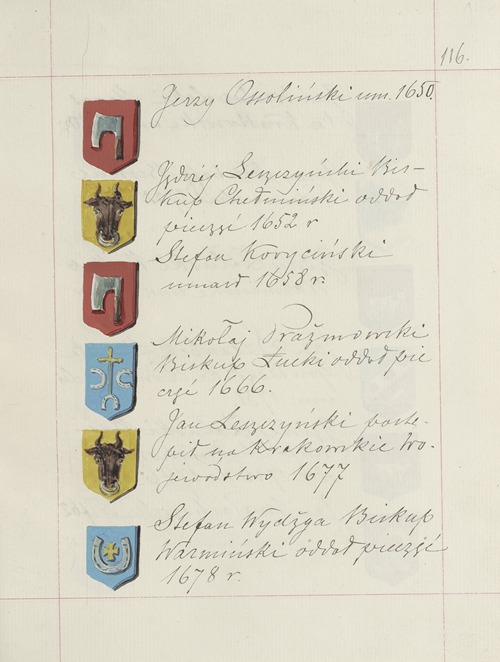 116.
Jerzy Ossoliński um. 1650.
Jędrzéj Leszczyński Bis-
kup Chełmiński oddał
pieczęć 1652 r
Stefan Koryciński
umarł 1658 r.
Mikołaj Prażmowski
Biskup Łucki oddał pie
częć 1666.
Jan Leszczyński postą-
pił na Krakowskie Wo-
jewodstwo 1677
Stefan Wydżga Biskup
Warmiński oddał pieczęć
1678 r.